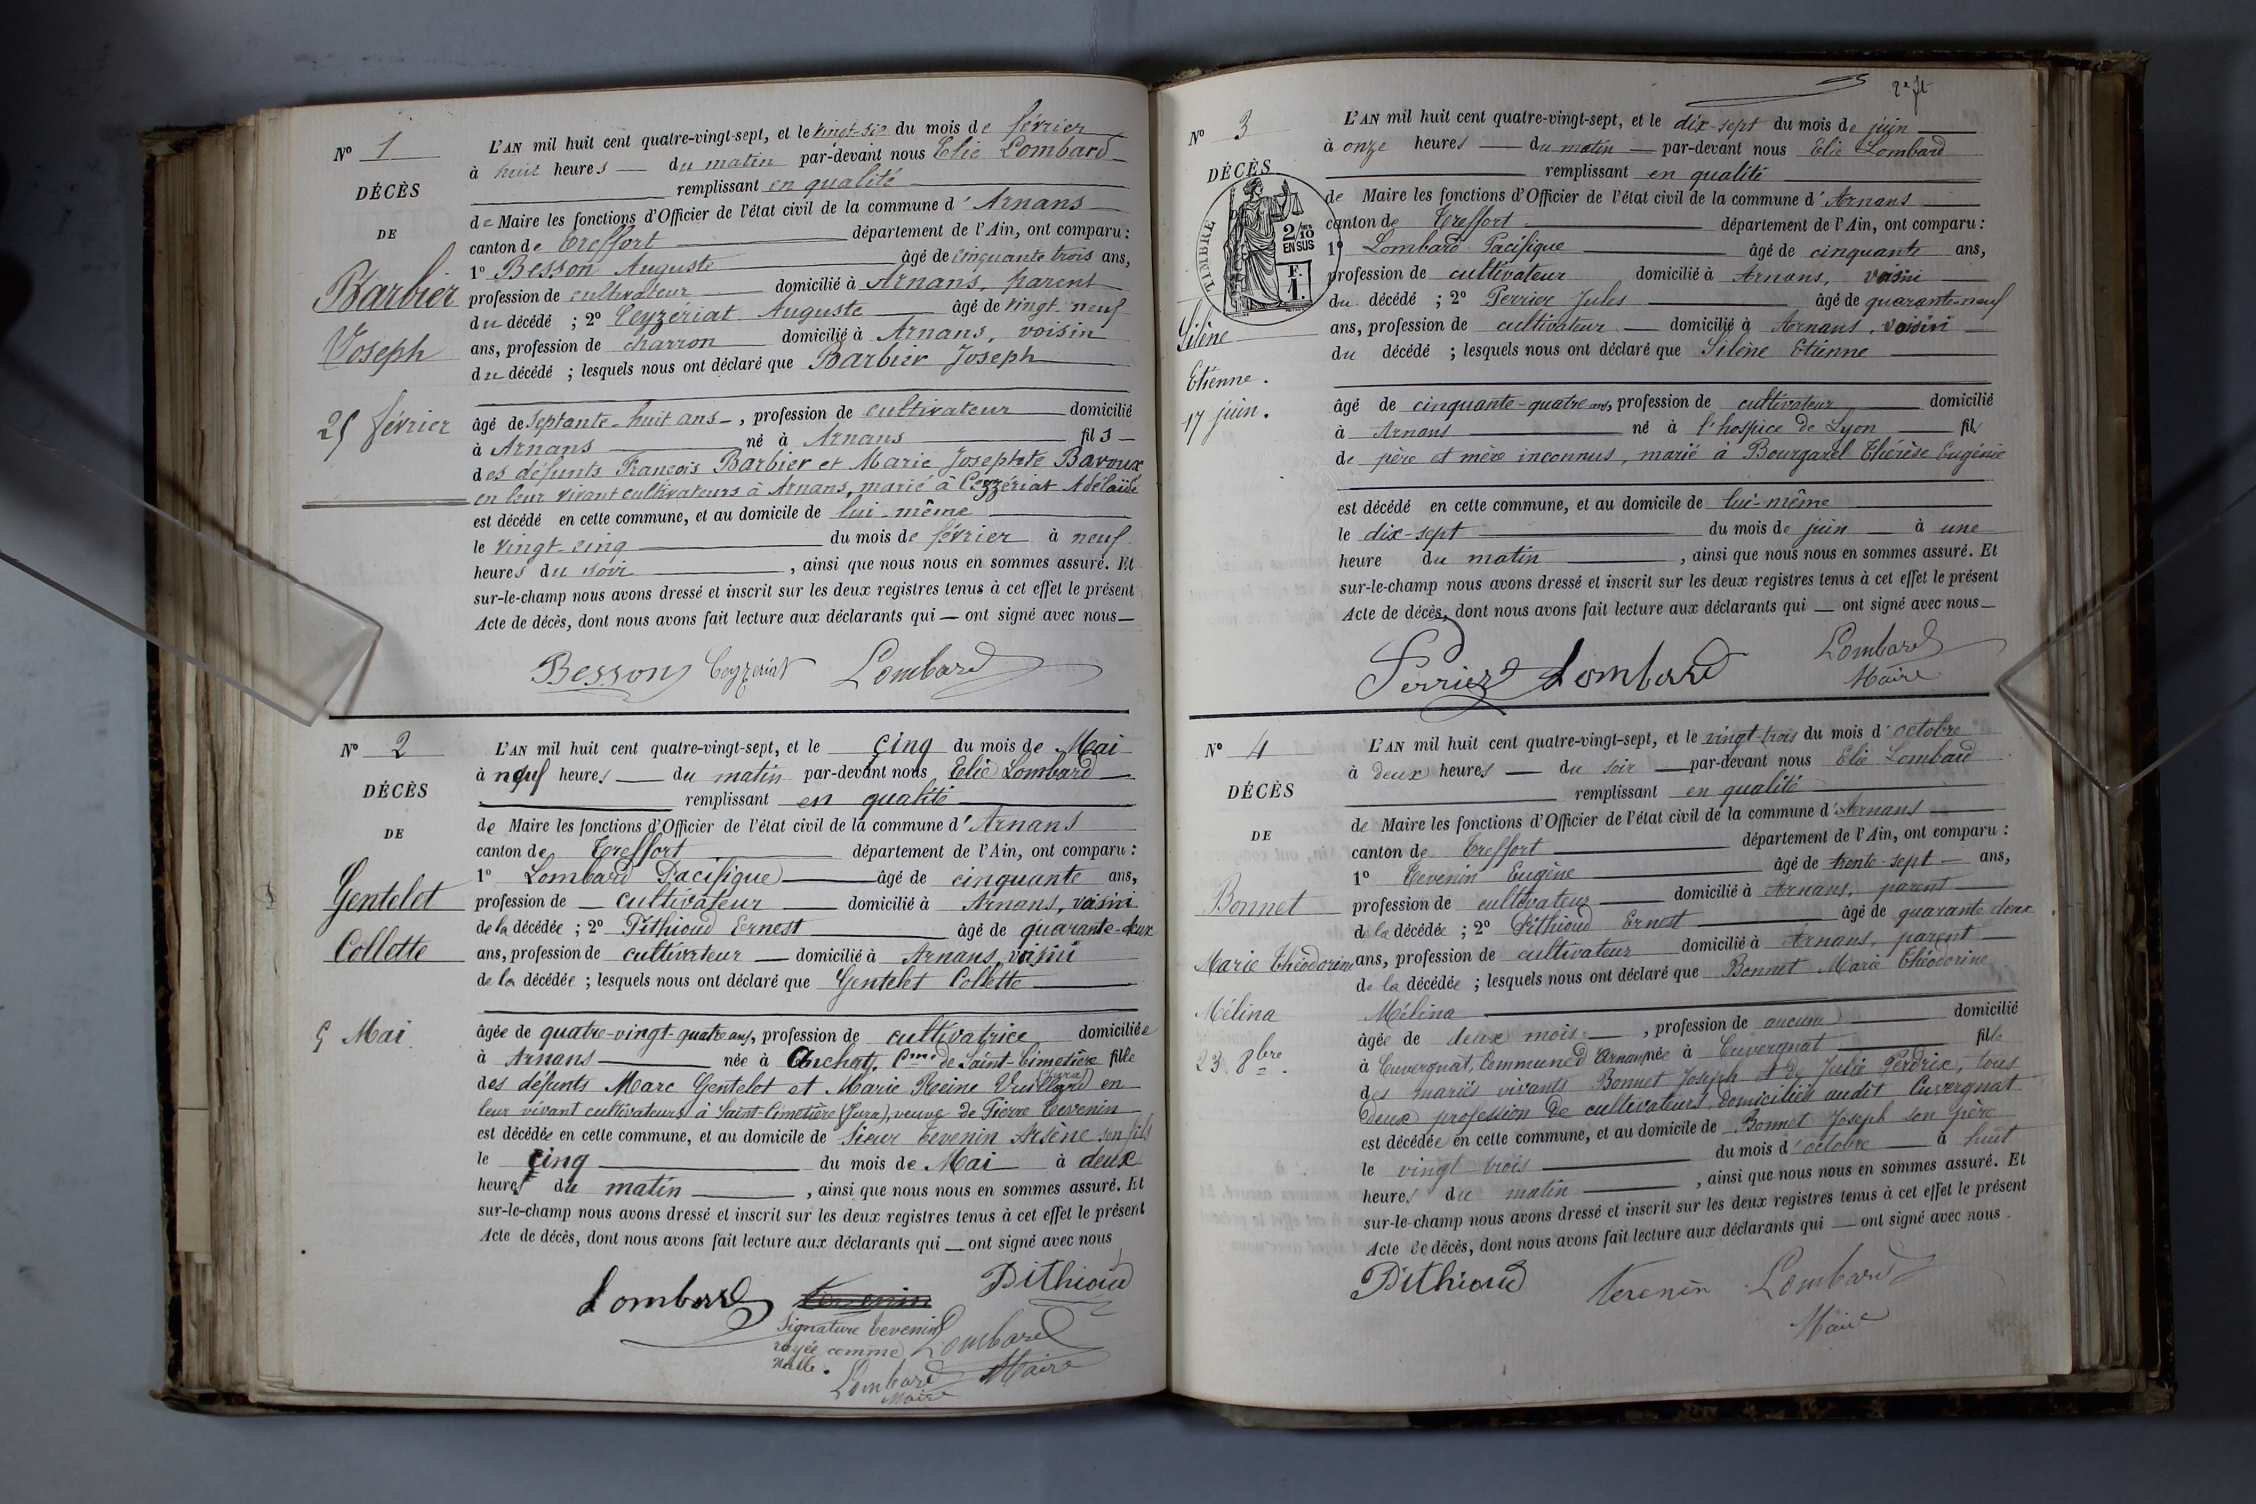 N° 1
DÉCÈS
DE
Barbier
Joseph
25 février
L'AN mil huit cent quatre-vingt-sept, et le vingt-six du mois de février
à huit heures — du matin par-devant nous Elie Lombard
remplissant en qualité
de Maire les fonctions d'Officier de l'état civil de la commune d'Arnans
canton de Treffort département de l'Ain, ont comparu :
1° Besson Auguste âgé de cinquante trois ans,
profession de cultivateur domicilié à Arnans, parent
du décédé ; 2° Ceyzériat Auguste âgé de vingt-neuf
ans, profession de charron domicilié à Arnans, voisin
du décédé ; lesquels nous ont déclaré que Barbier Joseph
âgé de septante-huit ans, profession de cultivateur domicilié
à Arnans né à Arnans fils
des défunts François Barbier et Marie Josephte Bavoux
en leur vivant cultivateurs à Arnans, marié à Ceyzériat Adélaïde
est décédé en cette commune, et au domicile de lui-même
le vingt-cinq du mois de février à neuf
heures du soir , ainsi que nous nous en sommes assuré. Et
sur-le-champ nous avons dressé et inscrit sur les deux registres tenus à cet effet le présent
Acte de décès, dont nous avons fait lecture aux déclarants qui — ont signé avec nous —
Besson Ceyzeriat Lombard
N° 2
DÉCÈS
DE
Gentelet
Collette
5 Mai
L'AN mil huit cent quatre-vingt-sept, et le cinq du mois de Mai
à neuf heures — du matin par-devant nous Elie Lombard
remplissant en qualité
de Maire les fonctions d'Officier de l'état civil de la commune d'Arnans
canton de Treffort département de l'Ain, ont comparu :
1° Lombard Pacifique âgé de cinquante ans,
profession de cultivateur domicilié à Arnans, voisin
de la décédée ; 2° Pithioud Ernest âgé de quarante-deux
ans, profession de cultivateur domicilié à Arnans, voisin
de la décédée ; lesquels nous ont déclaré que Gentelet Collette
âgée de quatre-vingt-quatre ans, profession de cultivatrice domiciliée
à Arnans née à Anchay, Cme de Saint-Cimetière fille
(Jura)
des défunts Marc Gentelet et Marie Reine Vuillard en
leur vivant cultivateurs à Saint-Cimetière (Jura), veuve de Pierre Tevenin
est décédée en cette commune, et au domicile de sieur Tevenin Arsène son fils
le cinq du mois de Mai à deux
heures du matin , ainsi que nous nous en sommes assuré. Et
sur-le-champ nous avons dressé et inscrit sur les deux registres tenus à cet effet le présent
Acte de décès, dont nous avons fait lecture aux déclarants qui — ont signé avec nous
Lombard Tevenin Pithioud
Signature Tevenin
rayée comme
nulle.
Lombard
Maire
Lombard
Maire
2e ft
N° 3
DÉCÈS
TIMBRE
2/10 EN SUS
F. 1.
Silène
Etienne.
17 juin.
L'AN mil huit cent quatre-vingt-sept, et le dix-sept du mois de juin
à onze heures — du matin — par-devant nous Elie Lombard
remplissant en qualité
de Maire les fonctions d'Officier de l'état civil de la commune d'Arnans
canton de Treffort département de l'Ain, ont comparu :
1° Lombard Pacifique âgé de cinquante ans,
profession de cultivateur domicilié à Arnans, voisin
du décédé ; 2° Perrier Jules âgé de quarante-neuf
ans, profession de cultivateur — domicilié à Arnans, voisin
du décédé ; lesquels nous ont déclaré que Silène Etienne
âgé de cinquante-quatre ans, profession de cultivateur domicilié
à Arnans né à l'hospice de Lyon fils
de père et mère inconnus, marié à Bourgarel Thérèse Eugénie
est décédé en cette commune, et au domicile de lui-même
le dix-sept du mois de juin à une
heure du matin , ainsi que nous nous en sommes assuré. Et
sur-le-champ nous avons dressé et inscrit sur les deux registres tenus à cet effet le présent
Acte de décès, dont nous avons fait lecture aux déclarants qui — ont signé avec nous —
Perrier Lombard Lombard
Maire
N° 4
DÉCÈS
DE
Bonnet
Marie Théodorine
Mélina
23 8bre.
L'AN mil huit cent quatre-vingt-sept, et le vingt-trois du mois d'octobre
à deux heures — du soir — par-devant nous Elie Lombard
remplissant en qualité
de Maire les fonctions d'Officier de l'état civil de la commune d'Arnans
canton de Treffort département de l'Ain, ont comparu :
1° Tevenin Eugène âgé de trente-sept ans,
profession de cultivateur domicilié à Arnans, parent
de la décédée ; 2° Pithioud Ernest âgé de quarante deux
ans, profession de cultivateur domicilié à Arnans, parent
de la décédée ; lesquels nous ont déclaré que Bonnet Marie Théodorine
Mélina
âgée de deux mois , profession de aucune domicilié
à Cuvergnat, Commune d'Arnans, née à Cuvergnat fille
des mariés vivants Bonnet Joseph et de Julie Perdrix, tous
deux profession de cultivateurs, domiciliés audit Cuvergnat
est décédée en cette commune, et au domicile de Bonnet Joseph son père
le vingt trois du mois d'octobre à huit
heures du matin , ainsi que nous nous en sommes assuré. Et
sur-le-champ nous avons dressé et inscrit sur les deux registres tenus à cet effet le présent
Acte de décès, dont nous avons fait lecture aux déclarants qui — ont signé avec nous.
Pithioud Tevenin Lombard
Maire